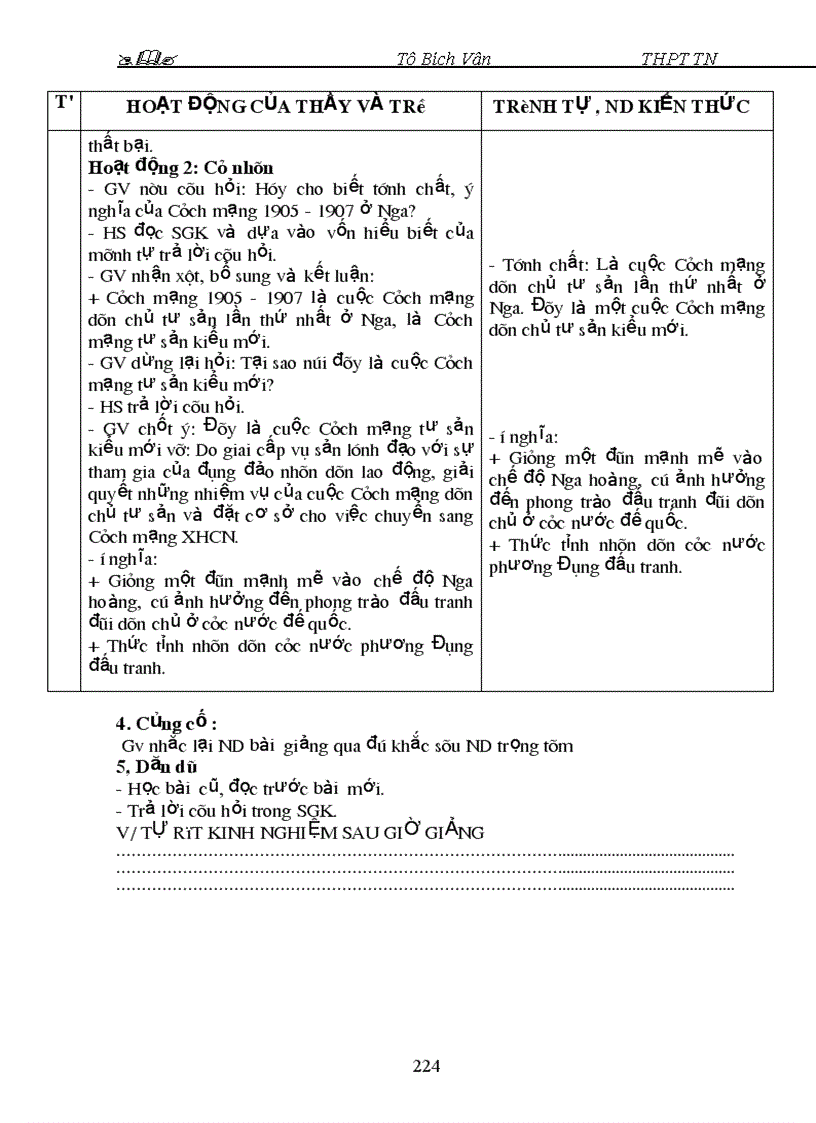 Tô Bích Vân THPT TN
T' HOẠT ĐỘNG CỦA THẦY VÀ TRề TRèNH TỰ , ND KIẾN THỨC
thất bại.
Hoạt động 2: Cỏ nhõn
- GV nờu cõu hỏi: Hóy cho biết tớnh chất, ý
nghĩa của Cỏch mạng 1905 - 1907 ở Nga?
- HS đọc SGK và dựa vào vốn hiểu biết của
mỡnh tự trả lời cõu hỏi.
- GV nhận xột, bổ sung và kết luận:
+ Cỏch mạng 1905 - 1907 là cuộc Cỏch mạng
dõn chủ tư sản lần thứ nhất ở Nga, là Cỏch
mạng tư sản kiểu mới.
- GV dừng lại hỏi: Tại sao núi đõy là cuộc Cỏch
mạng tư sản kiểu mới?
- HS trả lời cõu hỏi.
- GV chốt ý: Đõy là cuộc Cỏch mạng tư sản
kiểu mới vỡ: Do giai cấp vụ sản lónh đạo với sự
tham gia của đụng đảo nhõn dõn lao động, giải
quyết những nhiệm vụ của cuộc Cỏch mạng dõn
chủ tư sản và đặt cơ sở cho việc chuyển sang
Cỏch mạng XHCN.
- í nghĩa:
+ Giỏng một đũn mạnh mẽ vào chế độ Nga
hoàng, cú ảnh hưởng đến phong trào đấu tranh
đũi dõn chủ ở cỏc nước đế quốc.
+ Thức tỉnh nhõn dõn cỏc nước phương Đụng
đấu tranh.
- Tớnh chất: Là cuộc Cỏch mạng
dõn chủ tư sản lần thứ nhất ở
Nga. Đõy là một cuộc Cỏch mạng
dõn chủ tư sản kiểu mới.
- í nghĩa:
+ Giỏng một đũn mạnh mẽ vào
chế độ Nga hoàng, cú ảnh hưởng
đến phong trào đấu tranh đũi dõn
chủ ở cỏc nước đế quốc.
+ Thức tỉnh nhõn dõn cỏc nước
phương Đụng đấu tranh.
4. Củng cố :
Gv nhắc lại ND bài giảng qua đú khắc sõu ND trọng tõm
5, Dặn dũ
- Học bài cũ, đọc trước bài mới.
- Trả lời cõu hỏi trong SGK.
V/ TỰ RỳT KINH NGHIỆM SAU GIỜ GIẢNG
224